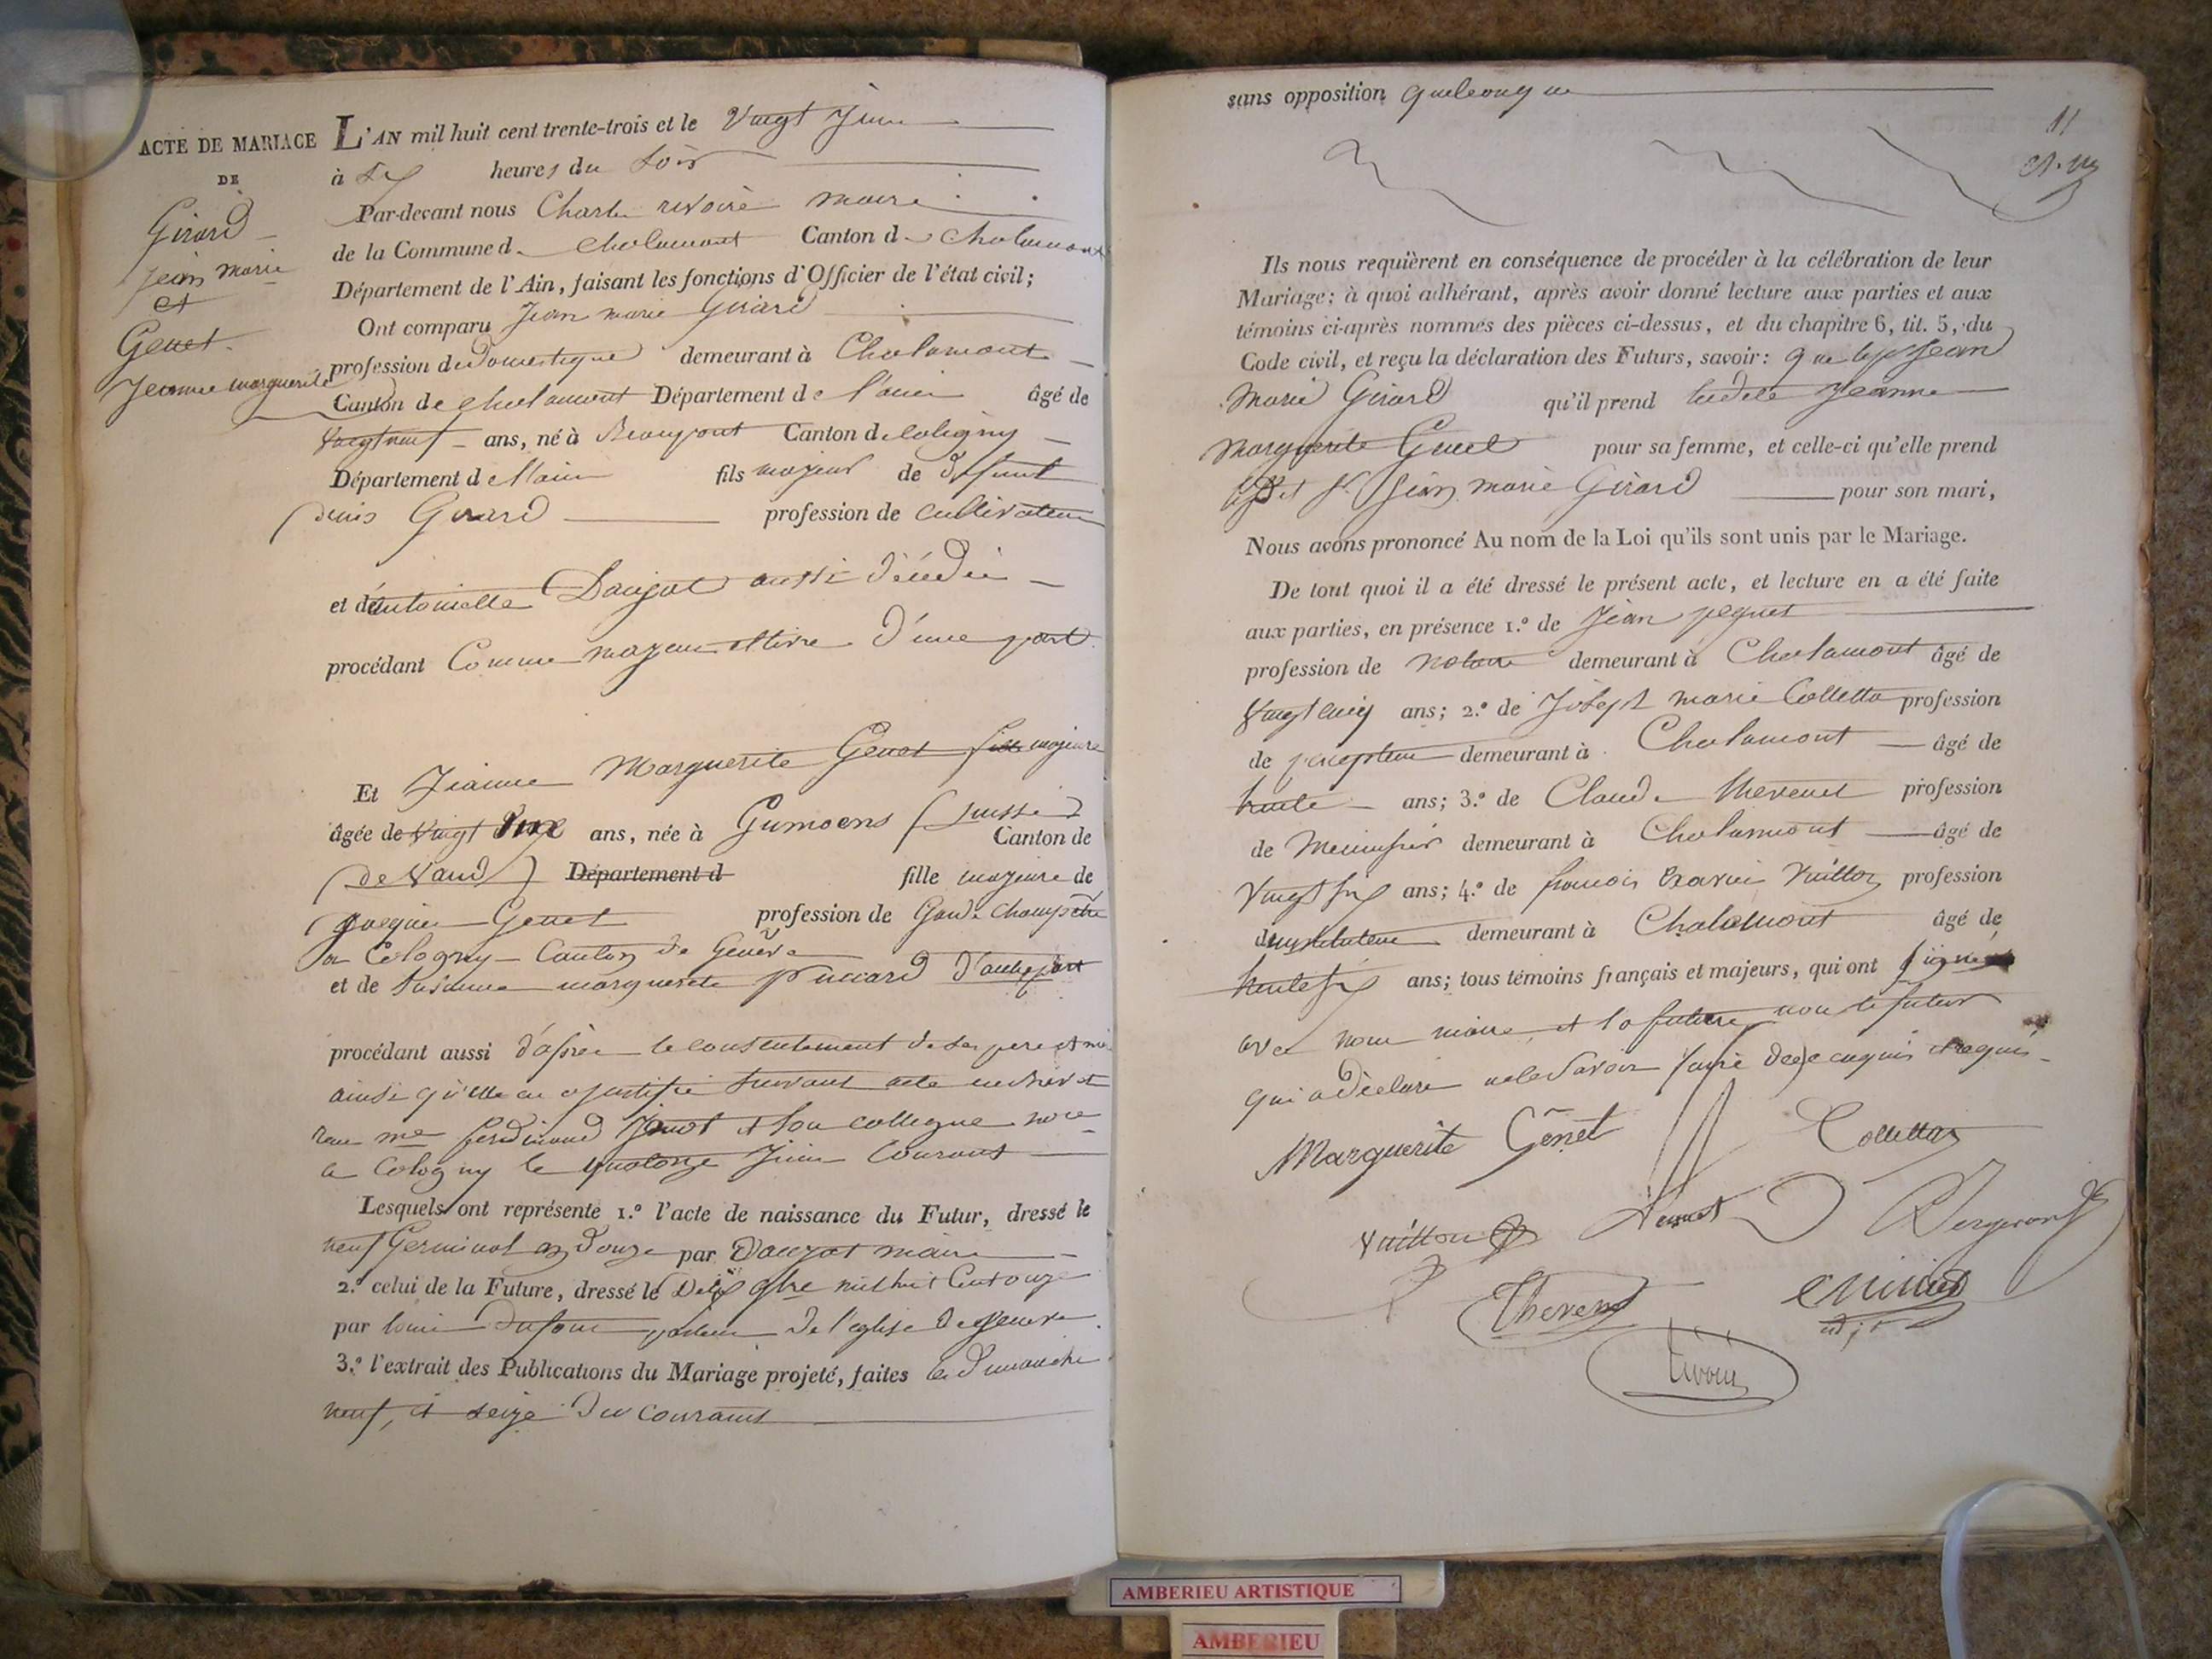 ACTE DE MARIAGE
DE
Girard
jean marie
et
Genet
Jeanne marguerite
L'AN mil huit cent trente-trois et le Vingt Juin
à six heures du Soir
Par-devant nous Charles rivoire maire
de la Commune d. Chalamont Canton de Chalamont
Département de l'Ain, faisant les fonctions d'Officier de l'état civil;
Ont comparu Jean marie Girard
profession de Domestique demeurant à Chalamont
Canton de chalamont Département de l'ain âgé de
vingt neuf ans, né à Beaupont Canton de Coligny
Département de l'ain fils majeur de defunt
denis Girard profession de Cultivateur
et de antoinette Daujat aussi décédée
procédant Comme majeur et libre d'une part
Et Jeanne Marguerite Genet fille majeure
âgée de vingt ans, née à Gumoens (Suisse)
Canton de
(de Vaud) Département d fille majeure de
jacques Genet profession de Garde champêtre
a Cologny Canton de Genève
et de Susanne marguerite d'autre part
procédant aussi d'après le consentement de ses pere et
ainsi qu'elle en a justifié suivant acte
reçu me ferdinand Janot et son collegue nore
a Cologny le quatorze Juin Courant
Lesquels ont représenté 1.º l'acte de naissance du Futur, dressé le
neuf Germinal an douze par Daujat maire
2.º celui de la Future, dressé le Dix 9bre mil huit Cent onze
par louis Dufour pasteur de l'eglise de geneve
3.º l'extrait des Publications du Mariage projeté, faites les Dimanche
neuf, et seize du courant
sans opposition quelconque
11
Ils nous requièrent en conséquence de procéder à la célébration de leur
Mariage; à quoi adhérant, après avoir donné lecture aux parties et aux
témoins ci-après nommés des pièces ci-dessus, et du chapitre 6, tit. 5, du
Code civil, et reçu la déclaration des Futurs, savoir: que led. Sr Jean
Marie Girard qu'il prend ladite Jeanne
Marguerite Genet pour sa femme, et celle-ci qu'elle prend
ledit Sr Jean marie Girard pour son mari,
Nous avons prononcé Au nom de la Loi qu'ils sont unis par le Mariage.
De tout quoi il a été dressé le présent acte, et lecture en a été faite
aux parties, en présence 1.º de Jean peguet
profession de notaire demeurant à Chalamont âgé de
vingt cinq ans; 2.º de Joseph marie Colletta profession
de percepteur demeurant à Chalamont âgé de
trente ans; 3.º de Claude thevenet profession
de Menuisier demeurant à Chalamont âgé de
vingt six ans; 4.º de francois Exavier Vuitton profession
d'instituteur demeurant à Chalamont âgé de
trente six ans; tous témoins français et majeurs, qui ont signé
avec nous maire et la future, non le futur
qui a déclaré ne le Savoir faire de ce enquis et requis
Marguerite Genet Collettaz
Vuitton peguet Bergeron
Thevenet
rivoire
AMBERIEU ARTISTIQUE
AMBERIEU